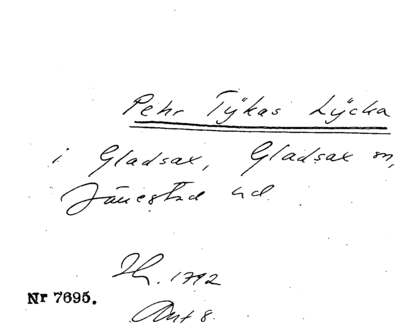 Pehr Tÿkas Lÿcka
i Gladsax, Gladsax sn,
Järrestad hd.
Hh. 1792
Nr 7695.
Akt 8.